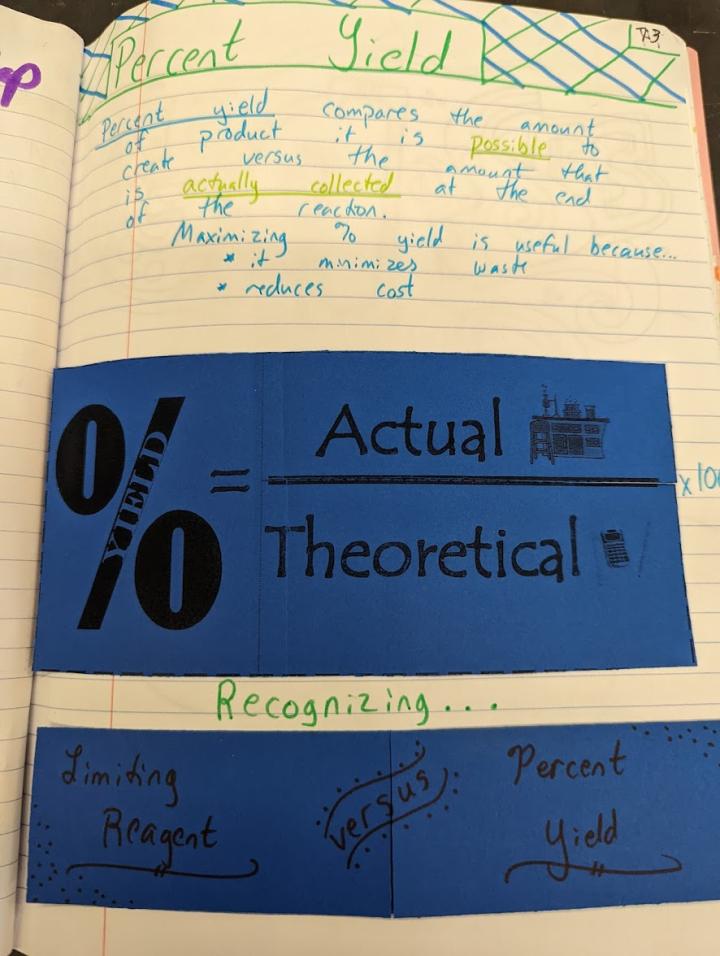 Percent Yield
73
Percent yield compares the amount
of product it is possible to
create versus the amount that
is actually collected at the end
of the reaction.
Maximizing % yield is useful because...
* it minimizes waste
* reduces cost
% YIELD = Actual
Theoretical
x 10
Recognizing...
Limiting
Reagent
versus
Percent
Yield